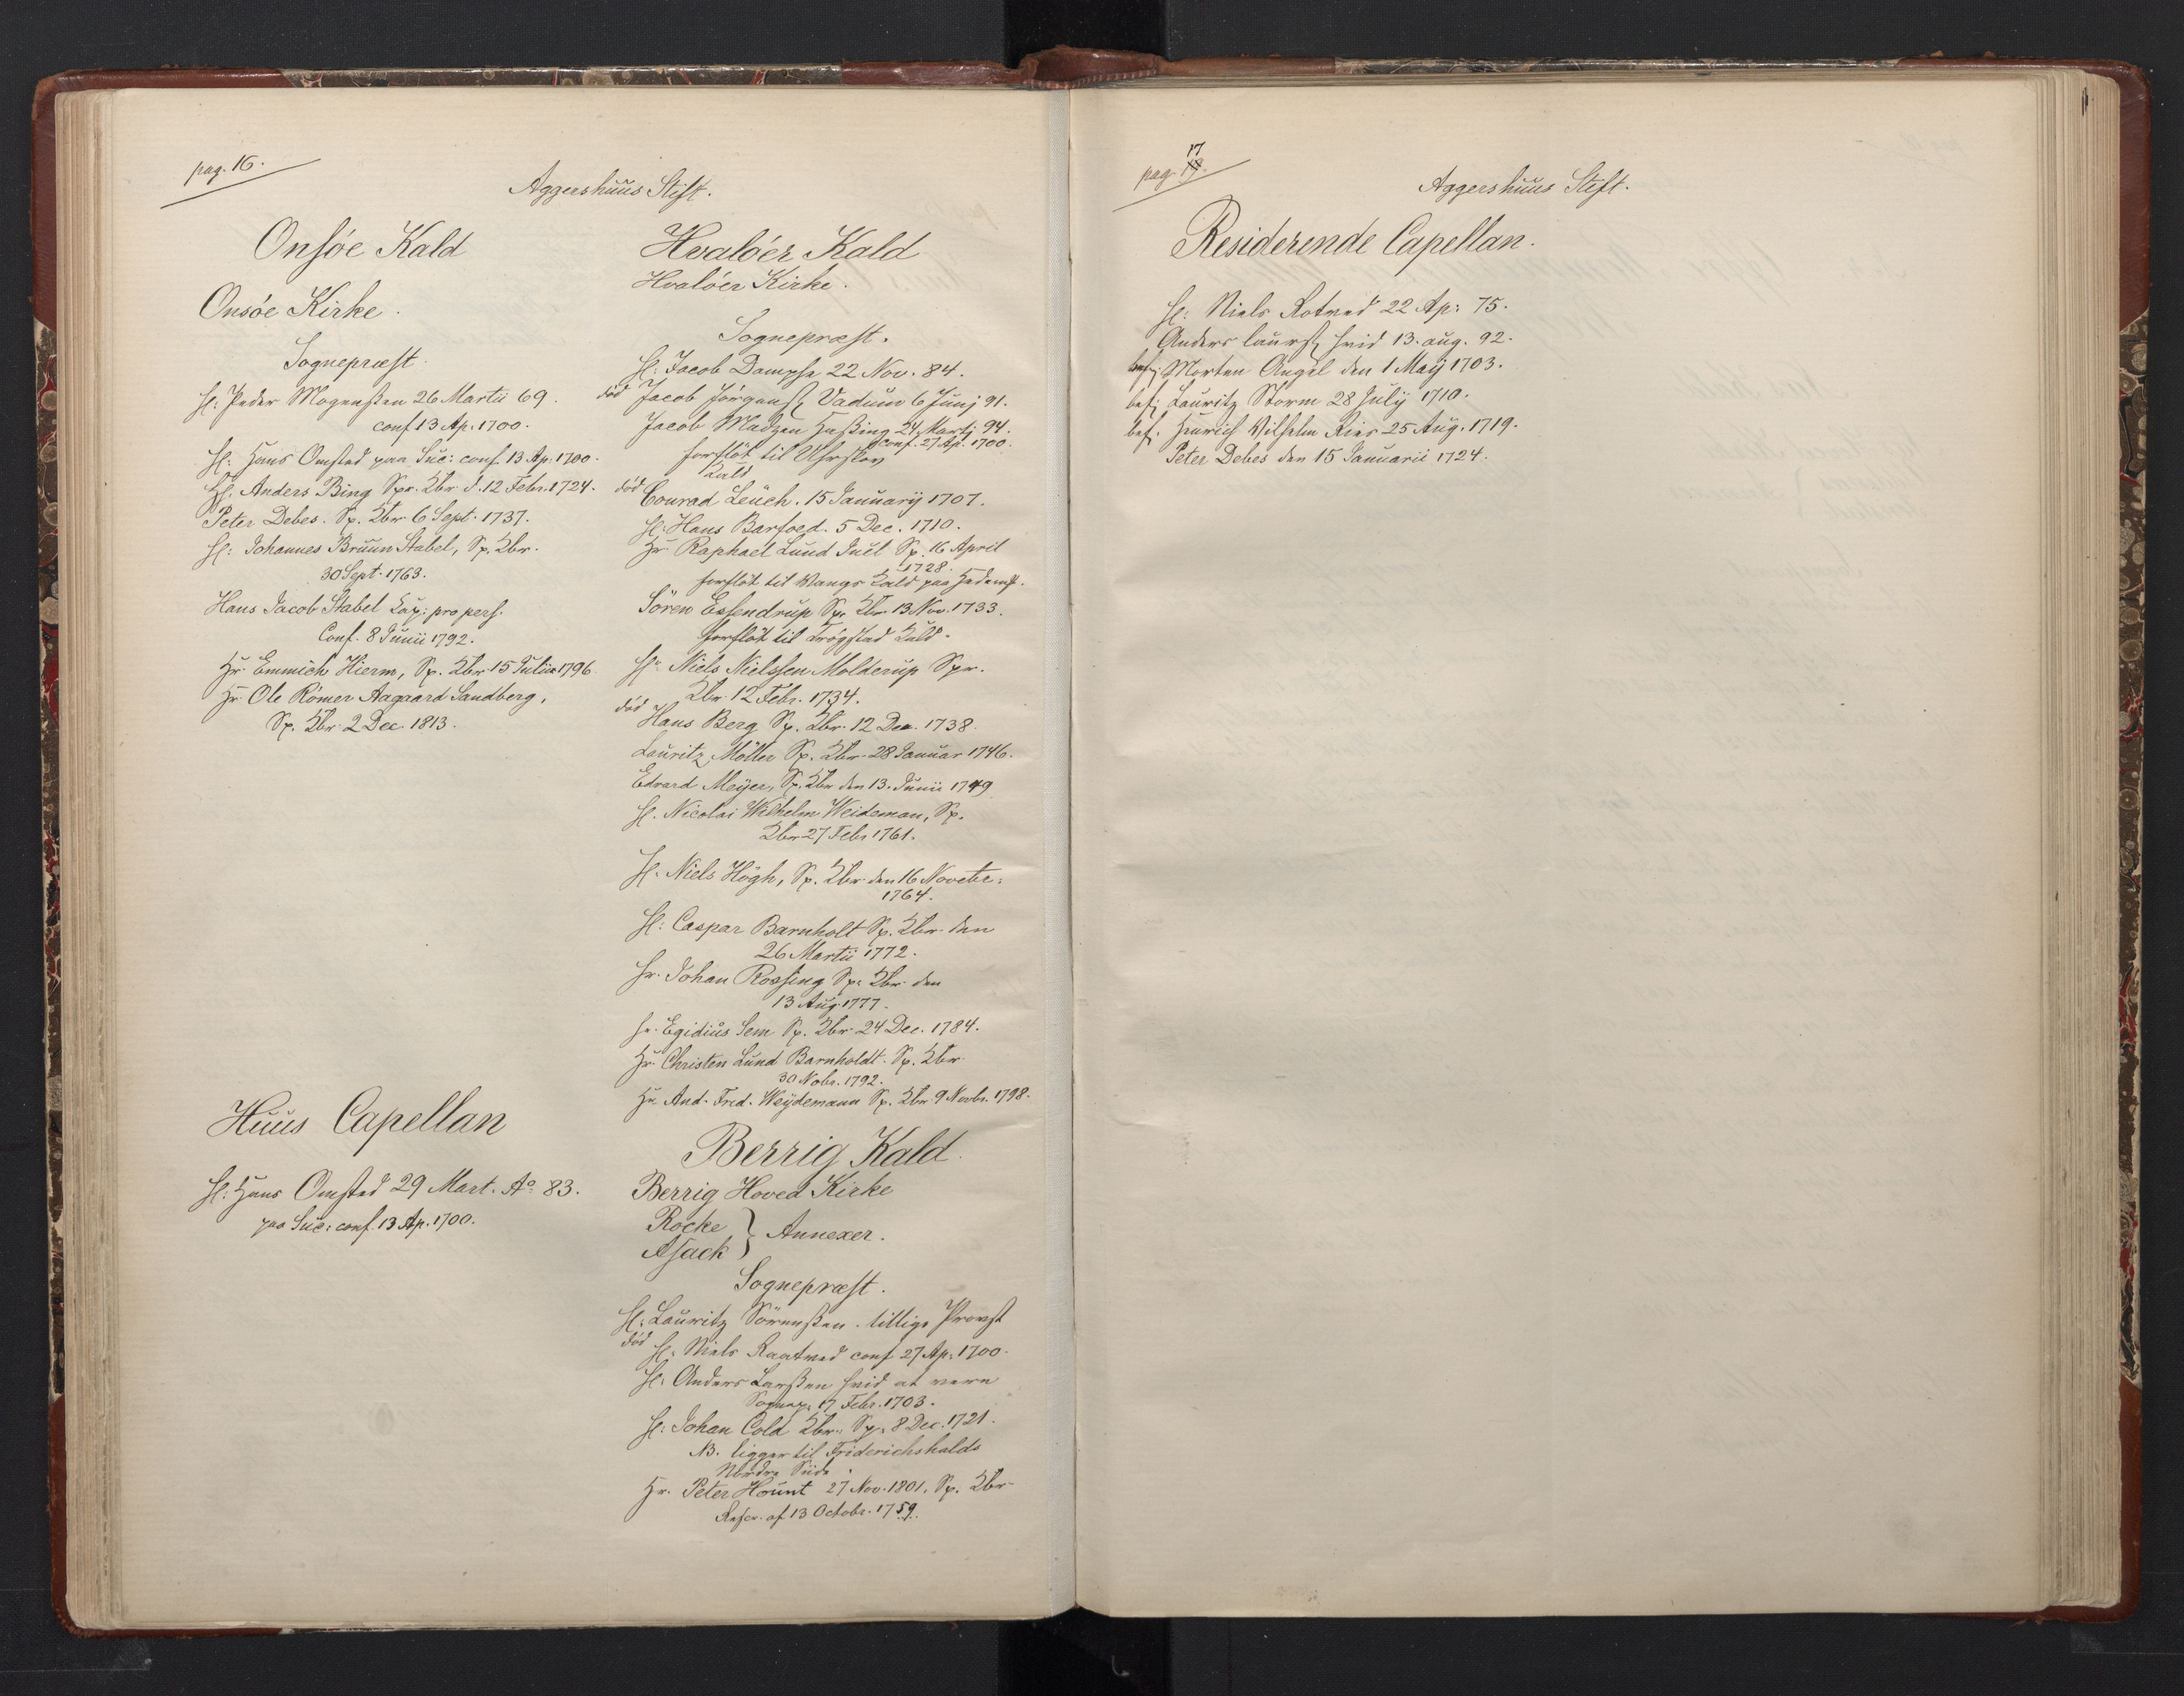 pag. 16.
Aggershuus Stift.
Onsøe Kald
Onsøe Kirke.
Sognepræst.
H: Peder Mogenßen 26 Martii 69.
conf 13 Ap. 1700.
H: Hans Omsted paa Suc: conf. 13 Ap. 1700.
H. Anders Bing Spr. Kbr. d. 12 Febr. 1724.
Peter Debes. Sp. Kbr. 6 Sept. 1737.
H: Johannes Bruun Stabel, Sp. Kbr.
30 Sept. 1763.
Hans Jacob Stabel Kap: pro pers.
Conf. 8 Junii 1792.
Hr. Emmich Hierm, Sp. Kbr 15 Julii 1796.
Hr Ole Römer Aagaard Sandberg,
Sp. Kbr. 2 Dec. 1813.
Huus Capellan
H: Hans Omsted 29 Mart. Aº 83.
paa Suc: conf. 13 Ap. 1700.
Hvalöer Kald
Hvalöer Kirke.
Sognepræst.
H: Jacob Dampse 22 Nov. 84.
död Jacob Jörgens. Vadum 6 Junj 91.
Jacob Madzen Haßing 24 Martj 94.
conf. 27 Ap. 1700.
forflöt til
Kald
död Conrad Leuch. 15 Januarij 1707.
H: Hans Barfoed. 5 Dec. 1710.
Hr Raphael Lund Juel Sp. 16 April
1728.
forflöt til Wangs Kald paa Hedem.
Sören Essendrup Sp. Kbr. 13 Nov. 1733.
forflöt til Trögstad Kald.
Hr Niels Nielssen Molderup Spr.
Kbr. 12 Febr. 1734.
död Hans Berg Sp. Kbr. 12 Dec. 1738.
Lauritz Möller Sp. Kbr. 28 Januar 1746.
Edvard Meijer, Sp. Kbr den 13. Junii 1749
H. Nicolai Wilhelm Weideman, Sp.
Kbr 27 Febr 1761.
H. Niels Högh, Sp. Kbr den 16 Novebr.
1764.
H: Caspar Barnholt Sp. Kbr. den
26 Martii 1772.
Hr. Johan Rossing Sp. Kbr. den
13 Aug. 1777.
Hr. Egidius Sem Sp. Kbr. 24 Dec. 1784.
Hr. Christen Lund Barnholdt. Sp. Kbr
30 Nobr. 1792.
Hr. And. Fred. Weijdemann Sp. Kbr 9 Novbr. 1798.
Berrig Kald.
Berrig Hoved Kirke
Rocke
Asack } Annexer.
Sognepræst.
H. Lauritz Sörenßen. tillige Provst
död H. Niels Raatved conf 27 Ap. 1700.
H. Anders Larßen Hvid at være
Sognep. 17 Febr. 1703.
H: Johan Cold Kbr. Sp. 8 Dec. 1721.
NB. ligger til Friderichshalds
Nordre Siide.
Hr. Peter Hount 27 Nov. 1801. Sp. Kbr
Rescr. af 13 Octobr. 1759.
17
pag. 19.
Aggershuus Stift.
Residerende Capellan.
H: Niels Rotved 22 Ap: 75.
Anders Laurs. Hvid 13. aug. 92.
bef: Morten Angel den 1 Maij 1703.
bef: Lauritz Storm 28 Julij 1710.
bef: Henrich Vilhelm Ries 25 Aug. 1719.
Peter Debes den 15 Januarii 1724.